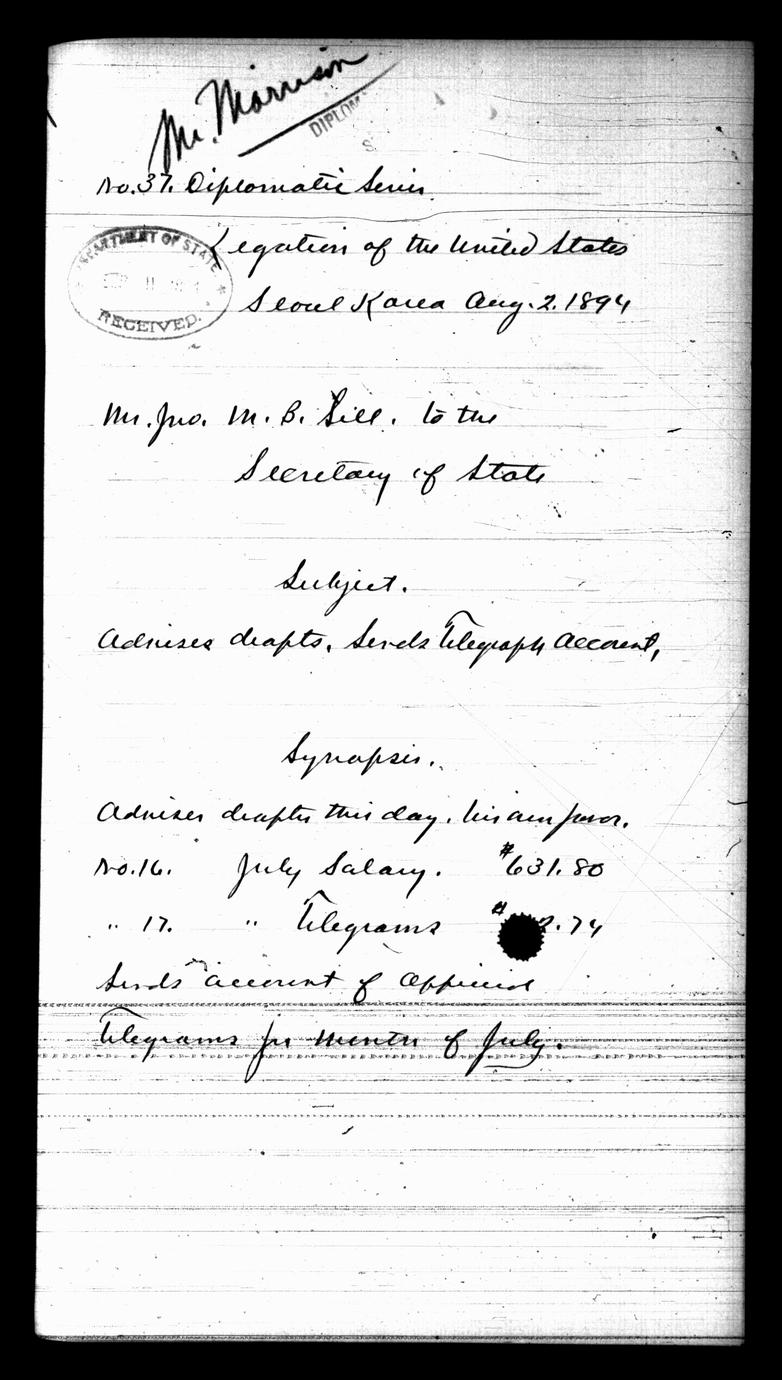 Mr. Morrison
DIPLOM
No. 37. Diplomatic Series
DEPARTMENT OF STATE
RECEIVED.
Legation of the United States
Seoul Korea Aug. 2. 1894
Mr. Jno. M. B. Sill. to the
Secretary of State
Subject.
Advises drafts. Sends Telegraph Account,
Synopsis.
Advises drafts this day. his own favor.
No. 16. July Salary. $631.80
" 17. " Telegrams 2.74
Sends account of Official
Telegrams for month of July.